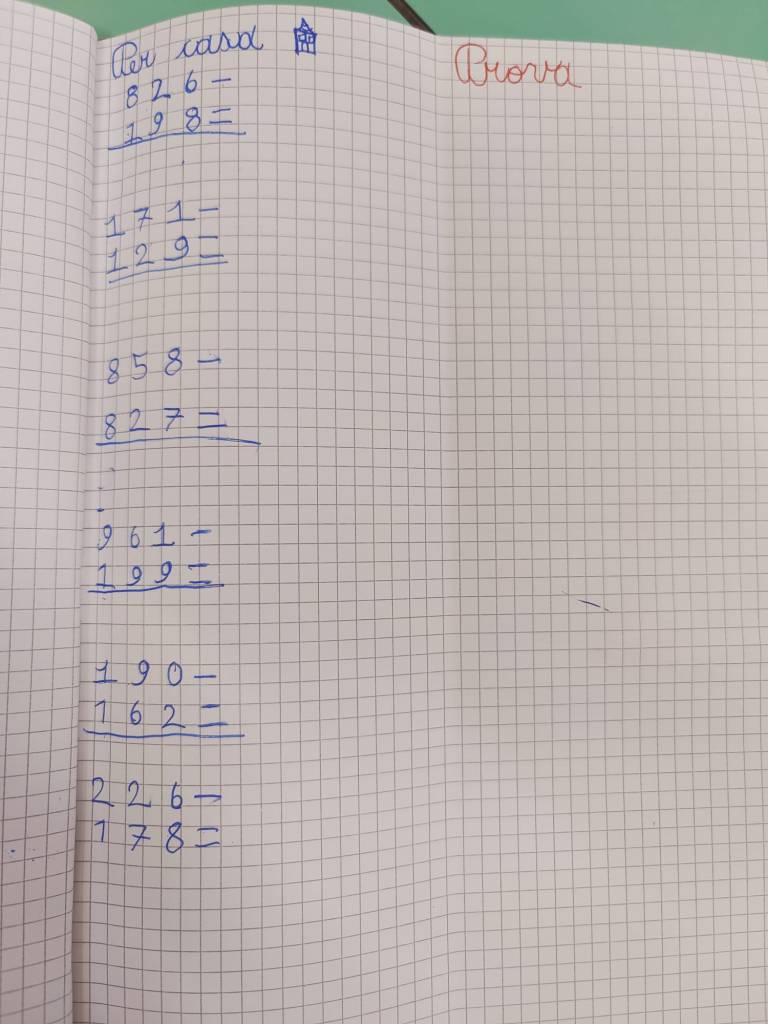 Per casa
Prova
826-
198=
171-
129=
858-
827=
961-
199=
190-
162=
226-
178=